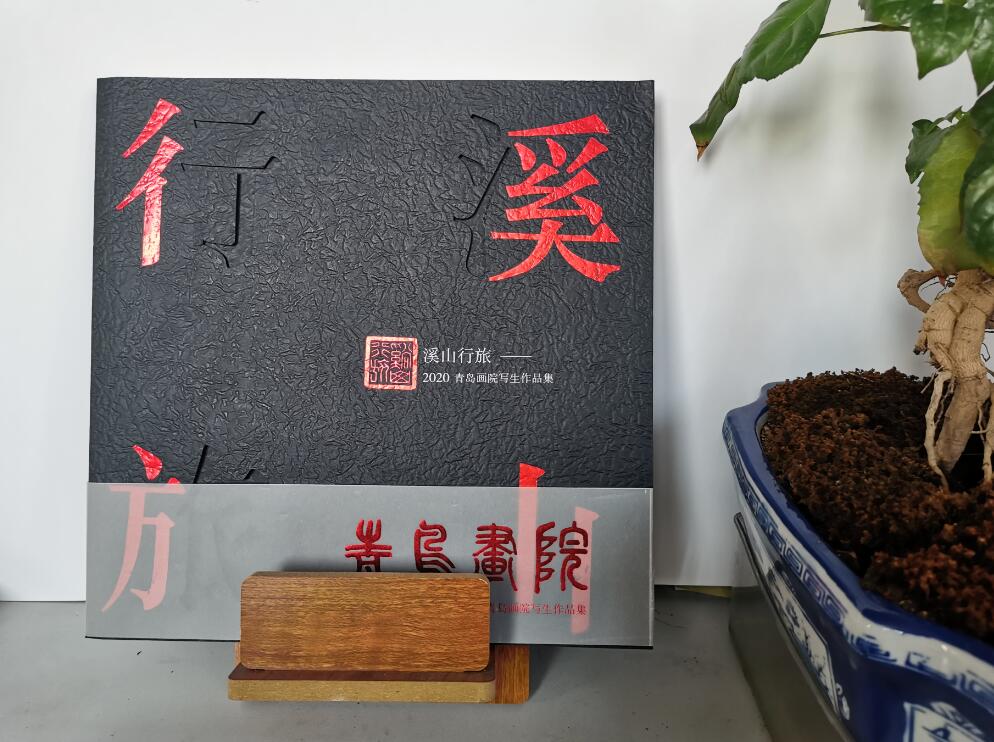 溪山
行旅
溪山行旅 ——
2020 青岛画院写生作品集
青島畫院
青岛画院写生作品集